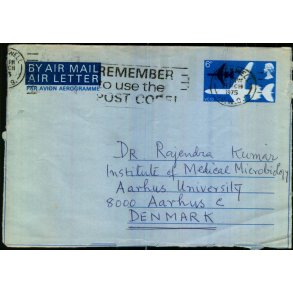 BY AIR MAIL
AIR LETTER
PAR AVION AEROGRAMME
REMEMBER
to use the
POST CODE
6p
1975
Dr Rajendra Kumar
Institute of Medical Microbiology
Aarhus University
8000 Aarhus C
DENMARK